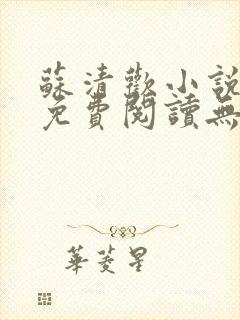 蘇清歡小說
免費閱讀無
華菱星